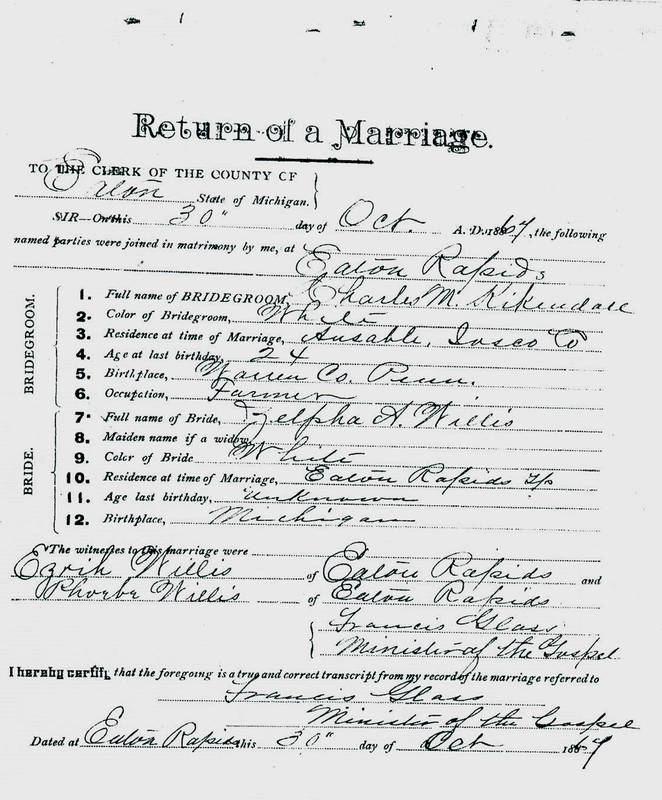 Return of a Marriage.
TO THE CLERK OF THE COUNTY OF
Eaton State of Michigan.
SIR—On this 30" day of Oct. A. D. 1867, the following
named parties were joined in matrimony by me, at
Eaton Rapids
BRIDEGROOM.
1. Full name of BRIDEGROOM, Charles M. Kikendall
2. Color of Bridegroom, White
3. Residence at time of Marriage, Ausable, Iosco Co
4. Age at last birthday, 24
5. Birthplace, Warren Co. Penn.
6. Occupation, Farmer
BRIDE.
7. Full name of Bride, Zelpha A. Willis
8. Maiden name if a widow,
9. Color of Bride White
10. Residence at time of Marriage, Eaton Rapids Tp
11. Age last birthday, unknown
12. Birthplace, Michigan
The witnesses to this marriage were
Willis of Eaton Rapids and
Phoebe Willis of Eaton Rapids
Francis Glass
Minister of the Gospel
I hereby certify, that the foregoing is a true and correct transcript from my record of the marriage referred to
Francis Glass
Minister of the Gospel
Dated at Eaton Rapids this 30" day of Oct 1867